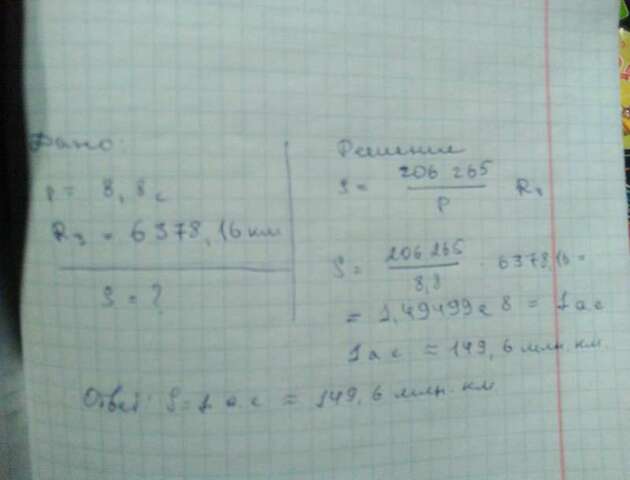 Дано:
p = 8,8 с
R₃ = 6378,16 км
S = ?
Решение
S = 206 265 / p R₃
S = 206 265 / 8,8 · 6378,16 =
= 1,49499e 8 = 1 а.е
1 а е ≈ 149,6 млн. км
Ответ: S = 1 а.е ≈ 149,6 млн. км